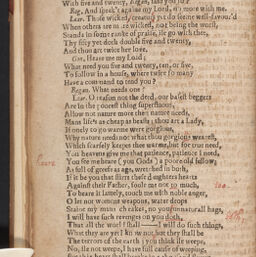 With five and twenty, Regan, said you so?
Reg. And speak't againe my Lord, no more with me.
Lear. Those wicked creatures yet do seeme well favour'd
When others are more wicked, not being the worst,
Stands in some ranke of praise, ile go with thee,
Thy fifty yet doth double five and twenty,
And thou art twice her love.
Gon. Heare me my Lord;
What need you five and twenty, ten, or five,
To follow in a house, where twise so many
Have a command to tend you?
Regan. What needs one?
Lear. O reason not the deed, our basest beggers
Are in the poorest thing superfluous,
Allow not nature more then nature needs,
Mans life's as cheap as beasts; thou art a Lady,
If onely to go warme were gorgeous,
Why nature needs not what thou gorgeous wearest,
Which scarsely keepes thee warme, but for true need,
You heavens give me that patience, patience I need,
You see me heare (you Gods) a poore old fellow,
As full of greefe as age, wretched in both,
If it be you that stirre these daughters hearts
Against their Father, foole me not to much,
To beare it lamely, touch me with noble anger,
O let not womens weapons, water drops
Staine my mans cheekes, no you unnaturall hags,
I will have such revenges on you both,
That all the world shall—— I will do such things,
What they are yet I know not, but they shall be
The terrors of the earth; you think ile weepe,
No, ile not weepe, I have full cause of weeping,